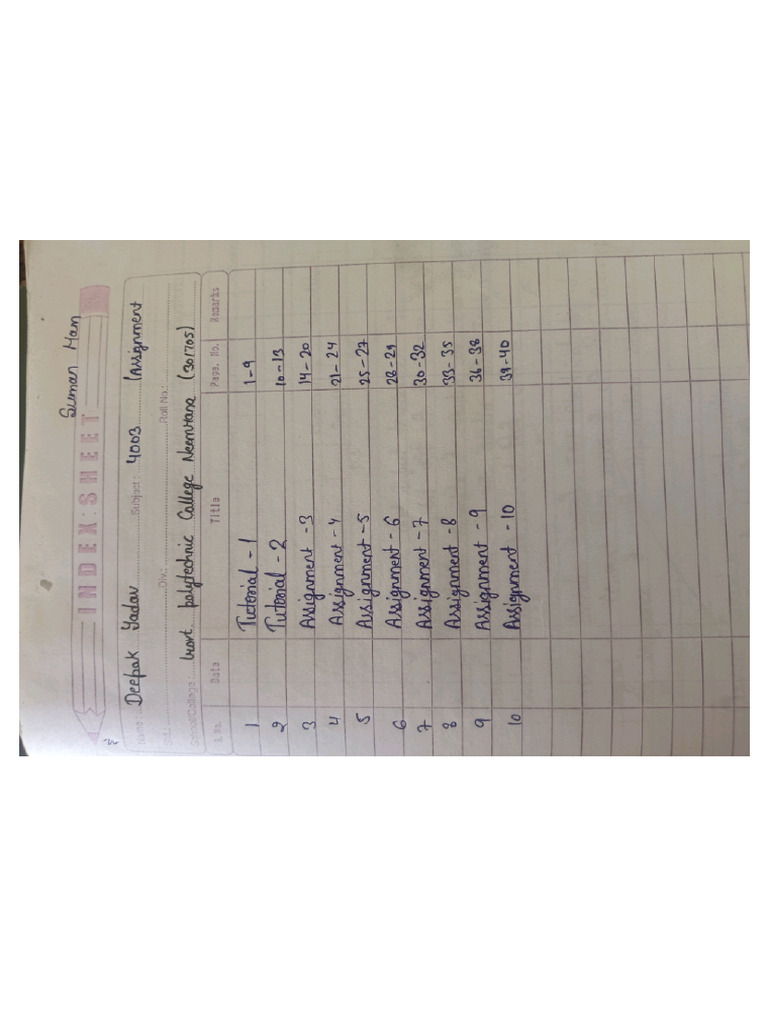 Suman Mam
INDEX:SHEET
Name: Deepak Yadav Subject: 4003 (Assignment
Std.: Div.: Roll No.:
School/College: Govt. polytechnic College Neemrana (301705)
S.No. Date Title Page. No. Remarks
1 Tutorial - 1 1-9
2 Tutorial - 2 10-13
3 Assignment - 3 14-20
4 Assignment - 4 21-24
5 Assignment - 5 25-27
6 Assignment - 6 28-29
7 Assignment - 7 30-32
8 Assignment - 8 33-35
9 Assignment - 9 36-38
10 Assignment - 10 39-40